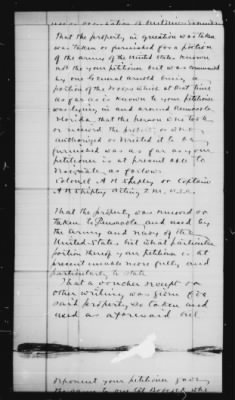 That the property in question was taken
was taken or furnished for a portion
of the army of the United States, known
not to your petitioner but was commanded
by one Colonel Arnold being a
portion of the troops which at that time
as far as is known to your petitioner
was laying in and around Pensacola,
Florida, that the person who took
or received the property or who
authorized or directed it to be
furnished was as far as your
petitioner is at present able to
designate, as follows:
Colonel A H Shipley or Captain
A H Shipley Acting 2 M. U.S.A.
That the property was removed or
taken to Pensacola and used by
the army and navy of the
United States but what particular
portion thereof your petitioner is at
present unable more fully and
particularly to state
That a voucher receipt or
other writing was given for
said property, so taken and
used as aforesaid but
deponent your petitioner gave
the same to one